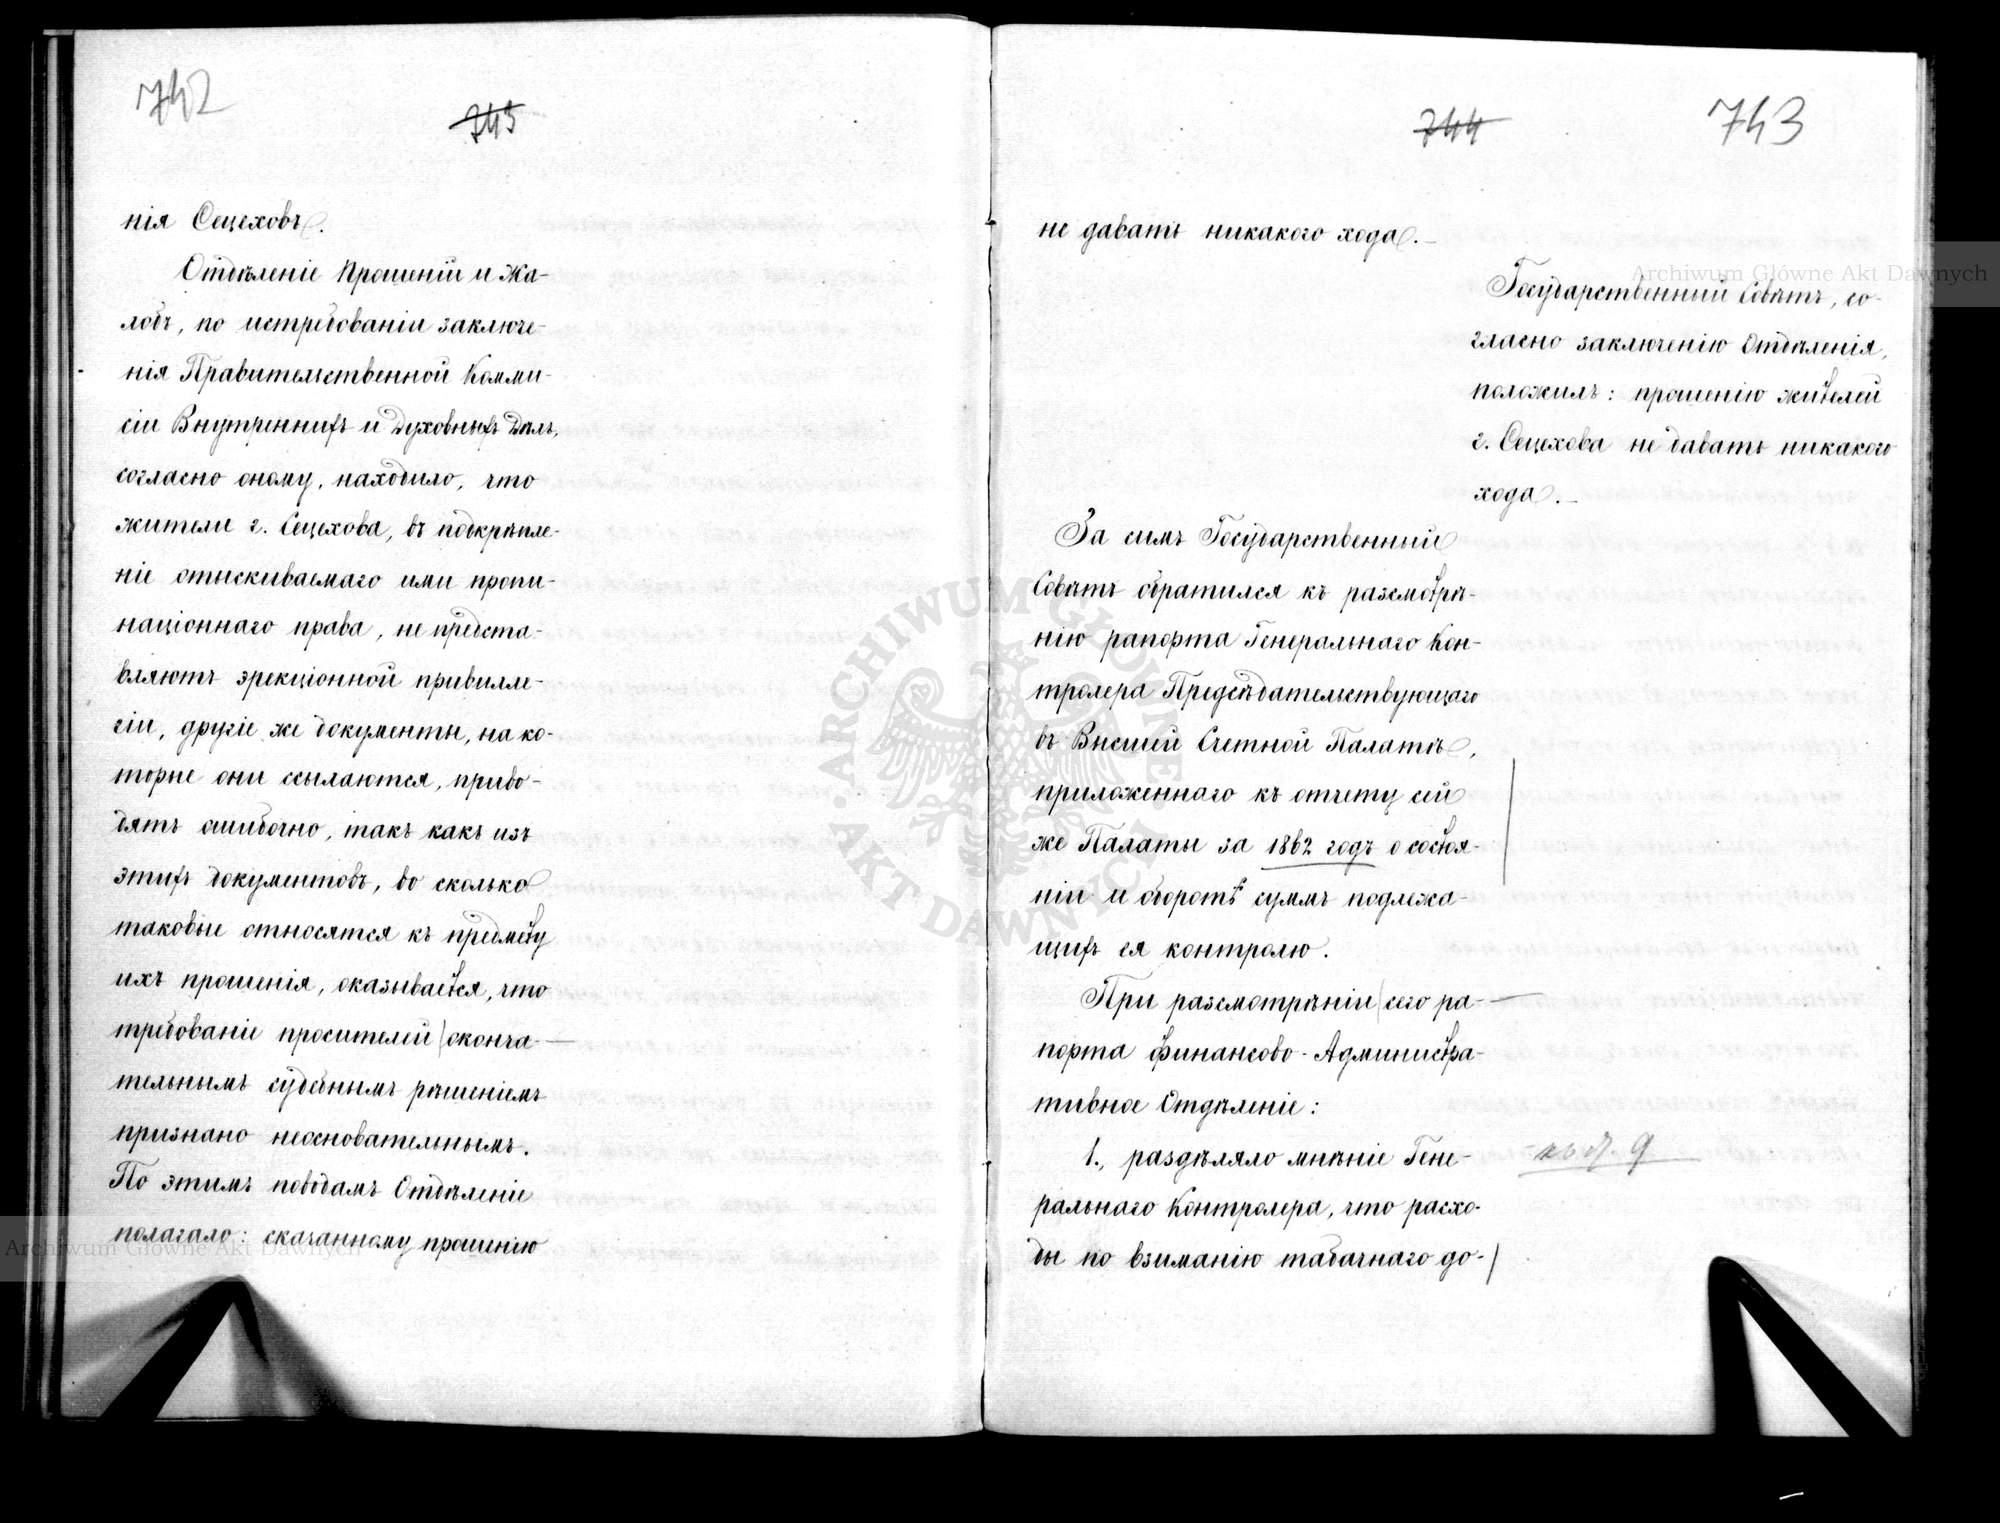 742
743
нія Сецеховъ.
Отдѣленіе Прошеній и Жа-
лобъ, по истребованіи заключе-
нія Правительственной Комми-
сіи Внутреннихъ и Духовныхъ Дѣлъ,
согласно оному, находило, что
жители г. Сецехова, въ подкрѣпле-
ніе отыскиваемаго ими пропи-
націоннаго права, не предста-
вляютъ эрекціонной привилле-
гіи, другіе же документы, на ко-
торые они ссылаются, приво-
дятъ ошибочно, такъ какъ изъ
этихъ документовъ, во сколько
таковые относятся къ предмету
ихъ прошенія, оказывается, что
требованіе просителей оконча-
тельнымъ судебнымъ рѣшеніемъ
признано неосновательнымъ.
По этимъ поводамъ Отдѣленіе
полагало: сказанному прошенію
744
743
не давать никакого хода.
Государственный Совѣтъ, со-
гласно заключенію Отдѣленія,
положилъ: прошенію жителей
г. Сецехова не давать никакого
хода.
За симъ Государственный
Совѣтъ обратился къ разсмотрѣ-
нію рапорта Генеральнаго Кон-
тролера Предсѣдательствующаго
въ Высшей Счетной Палатѣ,
приложеннаго къ отчету сей
же Палаты за 1862 годъ о состоя-
ніи и оборотѣ суммъ подлежа-
щихъ ея контролю.
При разсмотрѣніи сего ра-
порта Финансово-Администра-
тивное Отдѣленіе:
1., раздѣляло мнѣніе Гене-
ральнаго Контролера, что расхо-
ды по взиманію табачнаго до-
Archiwum Główne Akt Dawnych
Archiwum Główne Akt Dawnych
ARCHIWUM GŁÓWNE AKT DAWNYCH